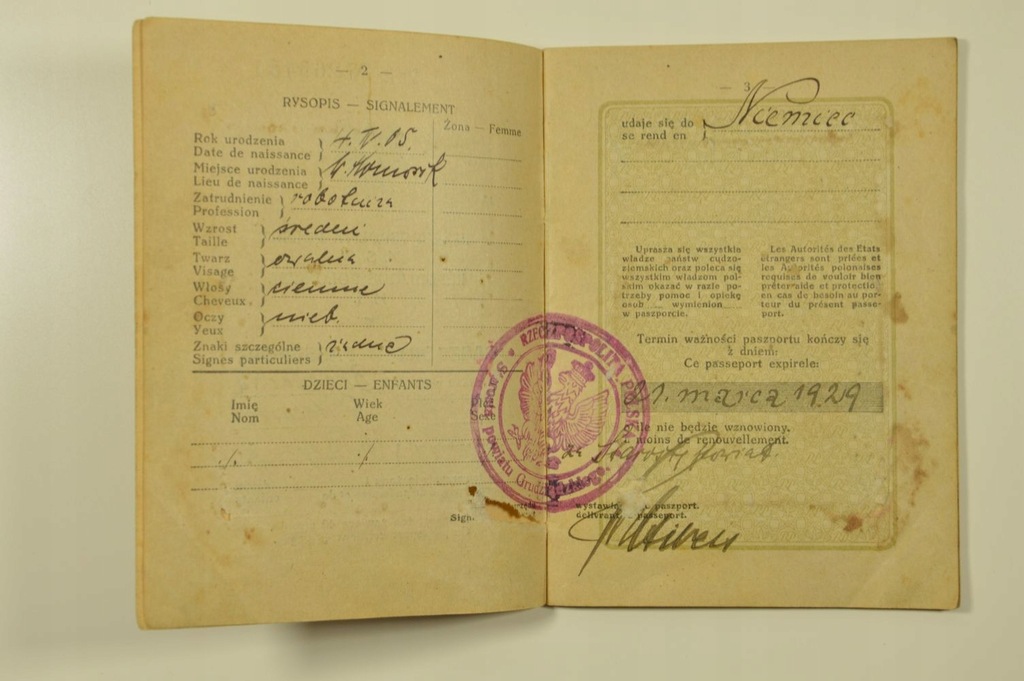 — 2 —
RYSOPIS — SIGNALEMENT
Żona — Femme
Rok urodzenia
Date de naissance
4. V. 05.
Miejsce urodzenia
Lieu de naissance
Zatrudnienie
Profession
robotnica
Wzrost
Taille
średni
Twarz
Visage
owalna
Włosy
Cheveux
ciemne
Oczy
Yeux
nieb.
Znaki szczególne
Signes particuliers
żadne
DZIECI — ENFANTS
Imię Wiek
Nom Age Sexe
·/. ·/.
Sign.
— 3
udaje się do
se rend en
Niemiec
Uprasza się wszystkie
władze państw cudzo-
ziemskich oraz poleca się
wszystkim władzom pol-
skim okazać w razie po-
trzeby pomoc i opiekę
osob wymienion
w paszporcie.
Les Autorités des Etats
étrangers sont priées et
les Autorités polonaises
requises de vouloir bien
prêter aide et protection
en cas de besoin au por-
teur du présent passe-
port.
Termin ważności paszportu kończy się
z dniem:
Ce passeport expire le:
21. marca 1929
o ile nie będzie wznowiony.
à moins de renouvellement.
za Starostę
wystawia paszport.
délivrant passeport.
RZECZPOSPOLITA POLSKA
Starosta powiatu Grudziądzkiego